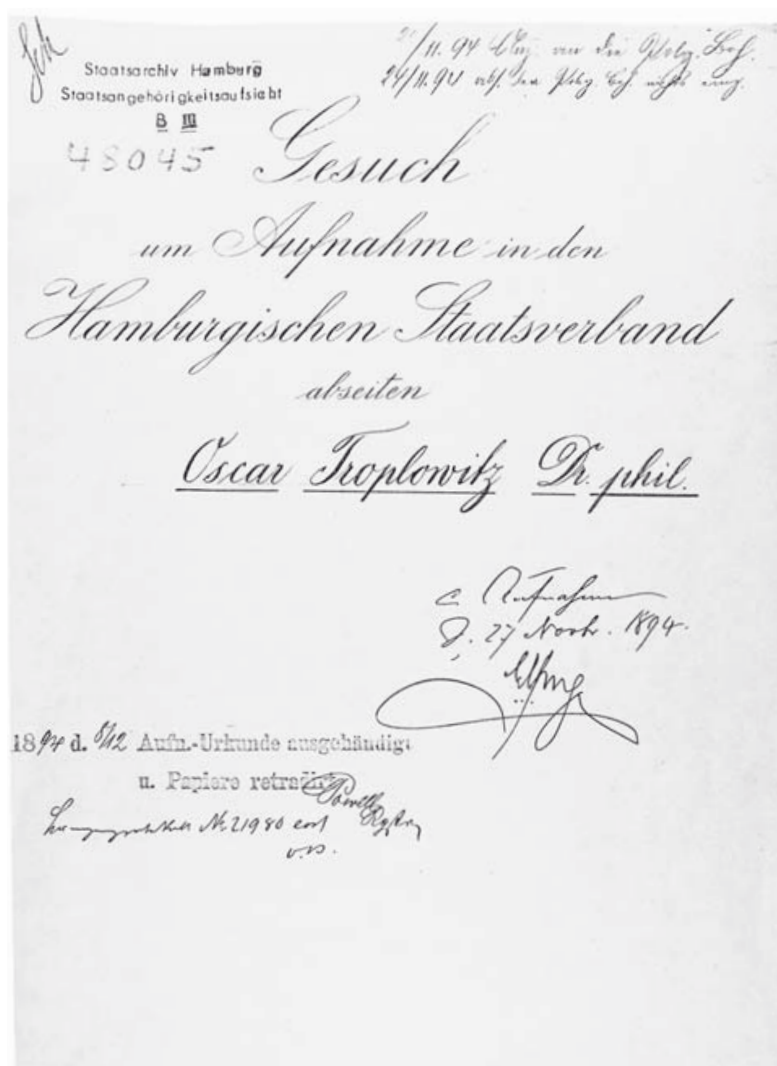 Staatsarchiv Hamburg
Staatsangehörigkeitsaufsicht
B III
48045
/11.94 an die
24/11.94
Gesuch
um Aufnahme in den
Hamburgischen Staatsverband
abseiten
Oscar Troplowitz Dr. phil.
Aufnahme
d. 27 Novbr. 1894.
1894 d. 5/12 Aufn.-Urkunde ausgehändigt
u. Papiere retradirt
No 21980